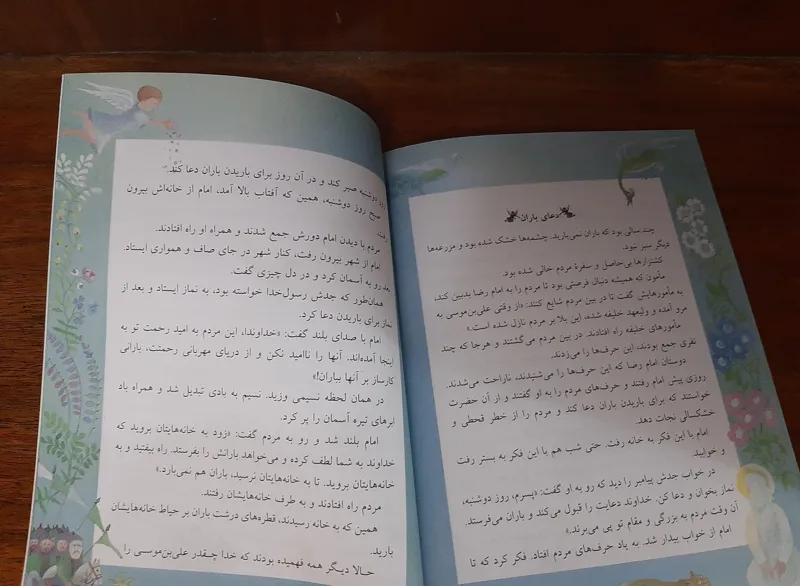 دعای باران
چند سالی بود که باران نمی‌بارید. چشمه‌ها خشک شده بود و مزرعه‌ها
دیگر سبز نبود.
کشتزارها بی‌حاصل و سفرهٔ مردم خالی شده بود.
مأمون که همیشه دنبال فرصتی بود تا مردم را به امام رضا بدبین کند،
به مأمورهایش گفت تا در بین مردم شایع کنند: «از وقتی علی‌بن‌موسی به
مرو آمده و ولیعهد خلیفه شده، این بلا بر مردم نازل شده است.»
مأمورهای خلیفه راه افتادند. در بین مردم می‌گشتند و هرجا که چند
نفری جمع بودند، این حرف‌ها را می‌زدند.
دوستان امام رضا که این حرف‌ها را می‌شنیدند، ناراحت می‌شدند.
روزی پیش امام رفتند و حرف‌های مردم را به او گفتند و از آن حضرت
خواستند که برای باریدن باران دعا کند و مردم را از خطرِ قحطی و
خشکسالی نجات دهد.
امام با این فکر به خانه رفت. حتی شب هم با این فکر به بستر رفت
و خوابید.
در خواب جدش پیامبر را دید که رو به او گفت: «پسرم، روز دوشنبه،
نماز بخوان و دعا کن. خداوند دعایت را قبول می‌کند و باران می‌فرستد.
آن وقت مردم به بزرگی و مقام تو پی می‌برند.»
امام از خواب بیدار شد. به یاد حرف‌های مردم افتاد. فکر کرد که تا
روز دوشنبه صبر کند و در آن روز برای باریدن باران دعا کند.
صبح روز دوشنبه، همین که آفتاب بالا آمد، امام از خانه‌اش بیرون
رفت.
مردم با دیدن امام دورش جمع شدند و همراه او راه افتادند.
امام از شهر بیرون رفت، کنار شهر در جای صاف و همواری ایستاد.
بعد رو به آسمان کرد و در دل چیزی گفت.
همان‌طور که جدش رسول‌خدا خواسته بود، به نماز ایستاد و بعد از
نماز برای باریدن دعا کرد.
امام با صدای بلند گفت: «خداوند، این مردم به امید رحمت تو به
اینجا آمده‌اند. آنها را ناامید نکن و از دریای مهربانی رحمتت، بارانی
کارساز بر آنها بباران!»
در همان لحظه نسیمی وزید. نسیم به بادی تبدیل شد و همراه باد
ابرهای تیره آسمان را پر کرد.
امام بلند شد و رو به مردم گفت: «زود به خانه‌هایتان بروید که
خداوند به شما لطف کرده و می‌خواهد بارانش را بفرستد. راه بیفتید و به
خانه‌هایتان بروید. تا به خانه‌هایتان نرسید، باران هم نمی‌بارد.»
مردم راه افتادند و به طرف خانه‌هایشان رفتند.
همین که به خانه رسیدند، قطره‌های درشت باران بر حیاط خانه‌هایشان
بارید.
حالا دیگر همه فهمیده بودند که خدا چقدر علی‌بن‌موسی را